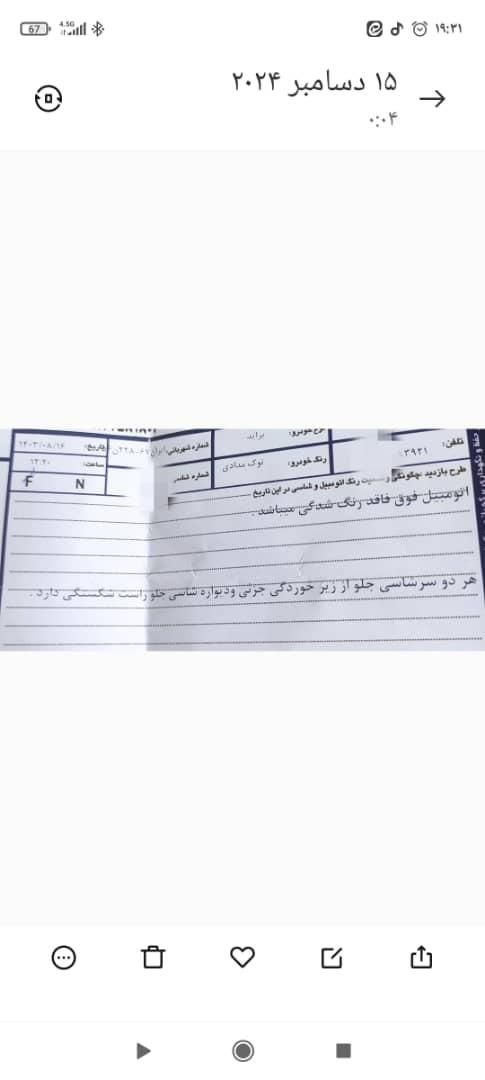 ۱۹:۳۱
4.5G
67
۱۵ دسامبر ۲۰۲۴
۰:۰۴
تلفن: ۳۹۳۱
نوع خودرو: براید
شماره شهربانی: ایران
تاریخ: ۱۴۰۳/۰۸/۱۶
رنگ خودرو: نوک مدادی
شماره شاسی:
ساعت: ۱۲:۲۰
N F
طرح بازدید چگونگی و رنگ اتومبیل و شاسی در این تاریخ
اتومبیل فوق فاقد رنگ شدگی میباشد.
هر دو سرشاسی جلو از زیر خوردگی جزئی ودیواره شاسی جلو راست شکستگی دارد.